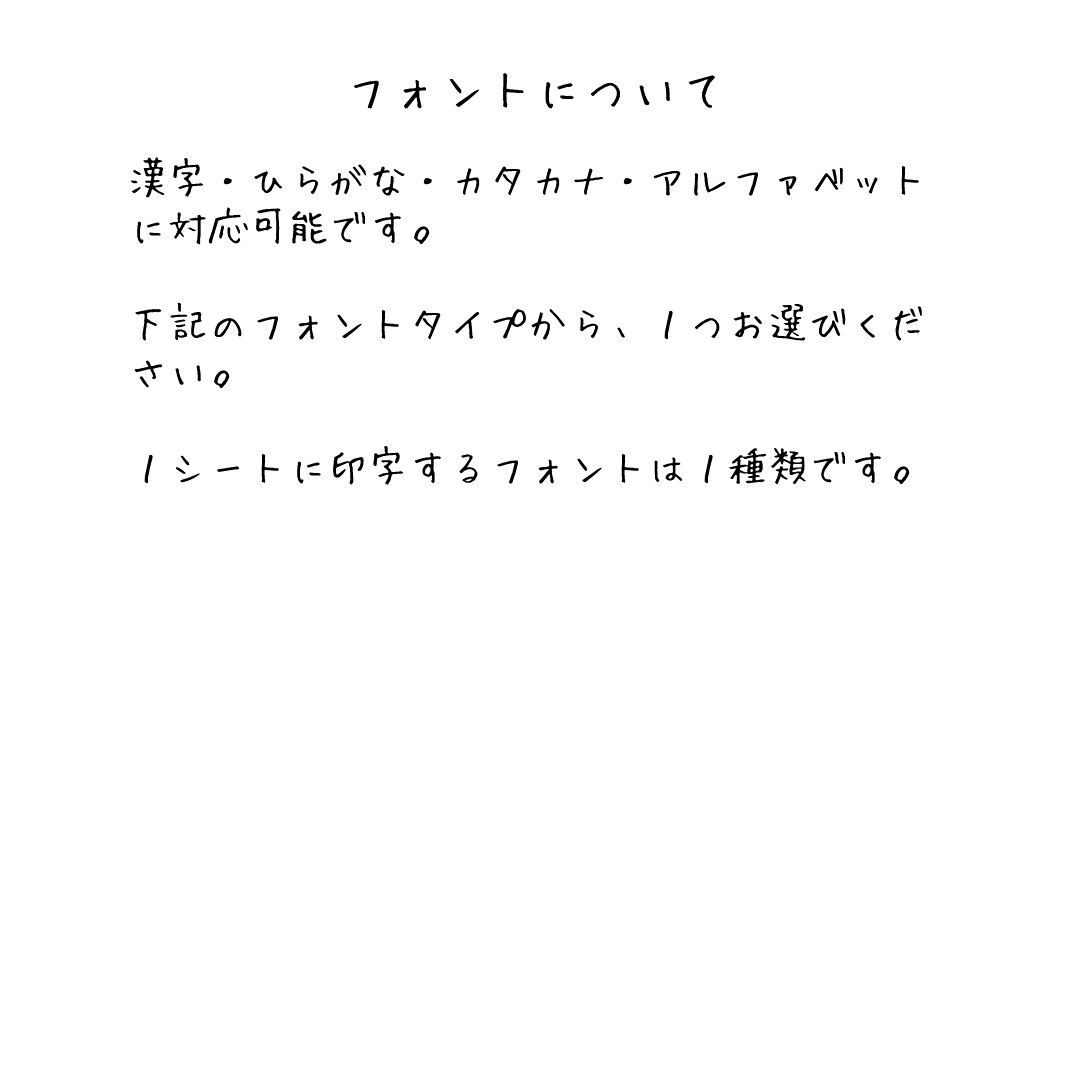 フォントについて
漢字・ひらがな・カタカナ・アルファベット
に対応可能です。
下記のフォントタイプから、1つお選びくだ
さい。
1シートに印字するフォントは1種類です。